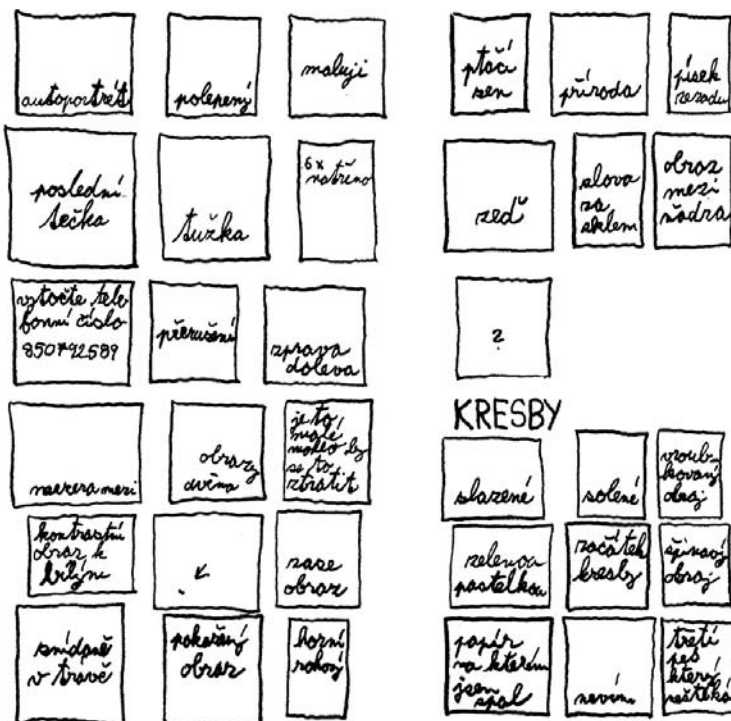 autoportrét
polepený
maluji
poslední
tečka
tužka
6x
natřeno
vytočte tele
fonní číslo
850792589
přerušení
zprava
doleva
mezera mezi
obrazy
dvěma
je to
malé
mohlo by
se to
ztratit
kontrastní
obraz k
bílým
zase
obraz
snídaně
v trávě
pokažený
obraz
horní
rohový
ptačí
sen
příroda
písek
zezadu
zeď
slova
za
sklem
obraz
mezi
ňadra
?
KRESBY
slazené
solené
vroub
kovaný
okraj
zelenou
pastelkou
začátek
kresby
špinavý
okraj
papír
na kterém
jsem
spal
nevím
třetí
pes
který
neštěká